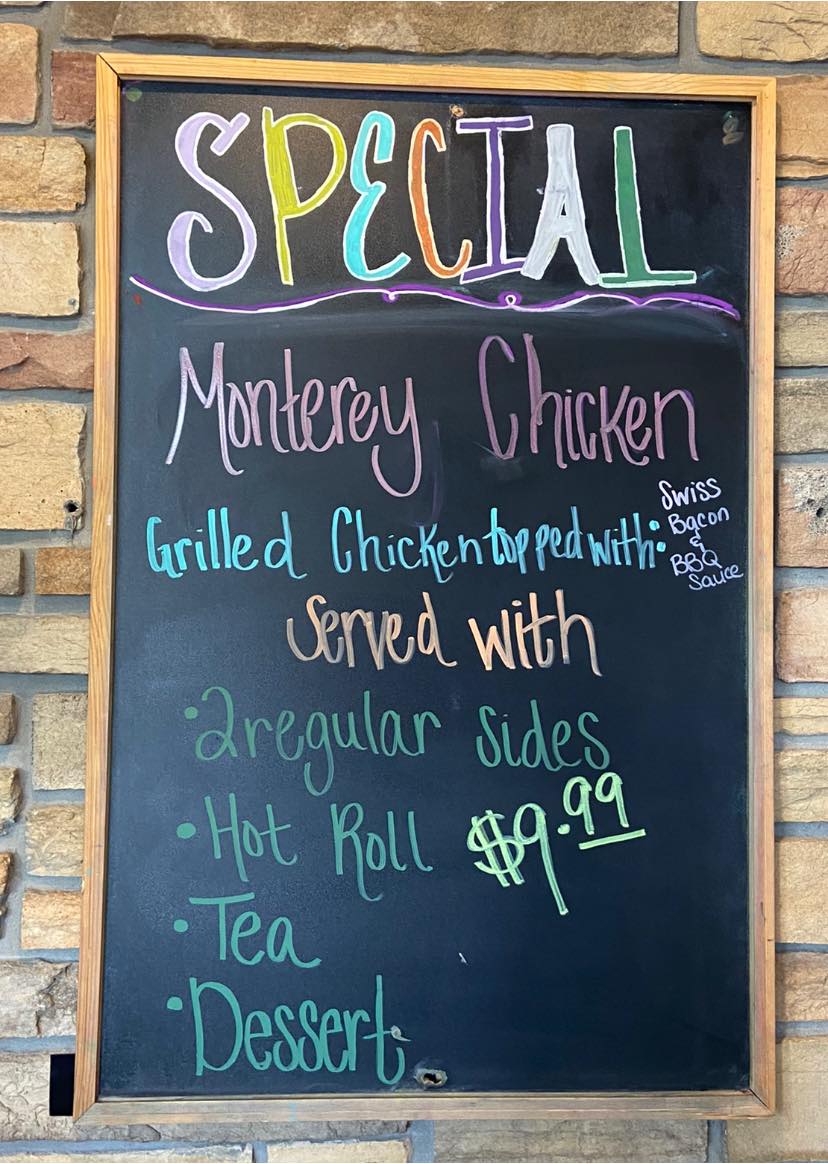 SPECIAL
Monterey Chicken
Grilled Chicken topped with:
Swiss
Bacon
&
BBQ
Sauce
Served with
• 2 regular sides
• Hot Roll $9.99
• Tea
• Dessert